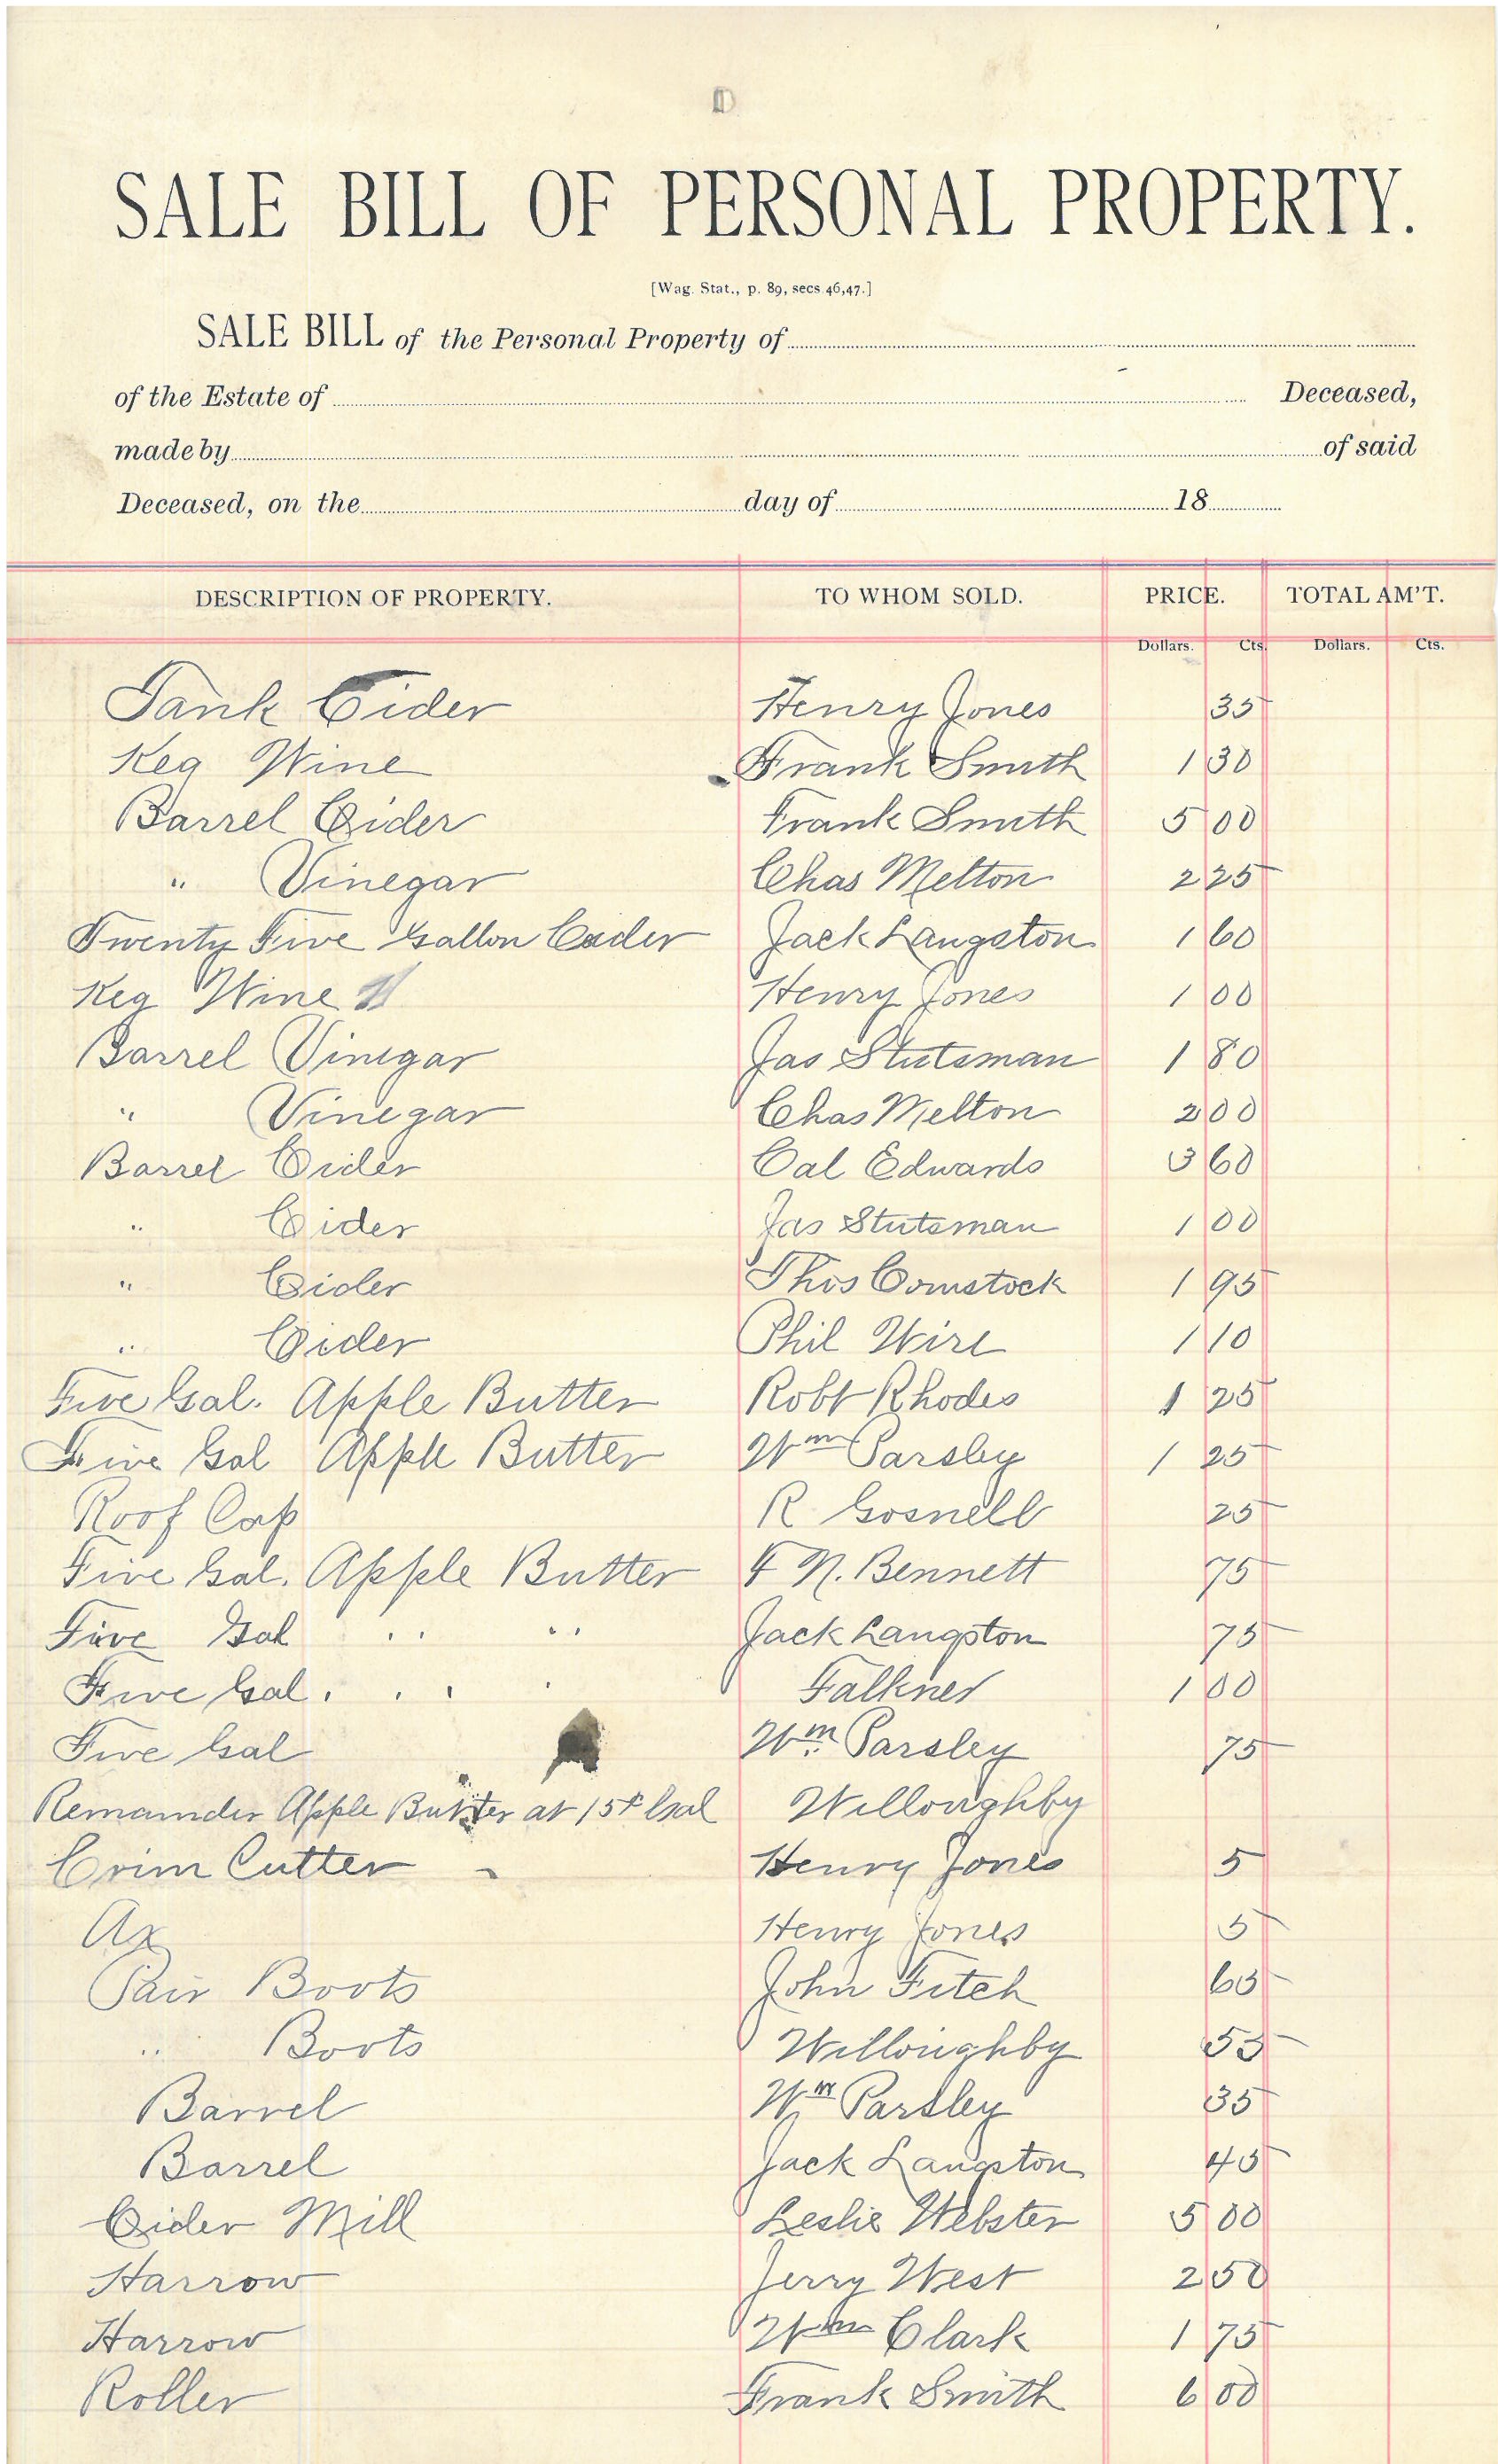 SALE BILL OF PERSONAL PROPERTY.
[Wag. Stat., p. 89, secs. 46, 47.]
SALE BILL of the Personal Property of
of the Estate of Deceased,
made by of said
Deceased, on the day of 18
DESCRIPTION OF PROPERTY. TO WHOM SOLD. PRICE. TOTAL AM'T.
Dollars. Cts. Dollars. Cts.
Tank Cider Henry Jones 35
Keg Wine Frank Smith 1 30
Barrel Cider Frank Smith 5 00
" Vinegar Chas Melton 2 25
Twenty Five Gallon Cider Jack Langston 1 60
Keg Wine Henry Jones 1 00
Barrel Vinegar Jas Stutsman 1 80
" Vinegar Chas Melton 2 00
Barrel Cider Cal Edwards 3 60
" Cider Jas Stutsman 1 00
" Cider Thos Comstock 1 95
" Cider Phil Wire 1 10
Five Gal. Apple Butter Robt Rhodes 1 25
Five Gal Apple Butter Wm Parsley 1 25
Roof Cap R Gosnell 25
Five Gal. Apple Butter F N. Bennett 75
Five Gal " " Jack Langston 75
Five Gal. " " Falkner 1 00
Five Gal Wm Parsley 75
Remainder Apple Butter at 15¢ Gal Willoughby
Corn Cutter Henry Jones 5
Ax Henry Jones 5
Pair Boots John Fitch 65
" Boots Willoughby 55
Barrel Wm Parsley 35
Barrel Jack Langston 45
Cider Mill Leslie Webster 5 00
Harrow Jerry West 2 50
Harrow Wm Clark 1 75
Roller Frank Smith 6 00